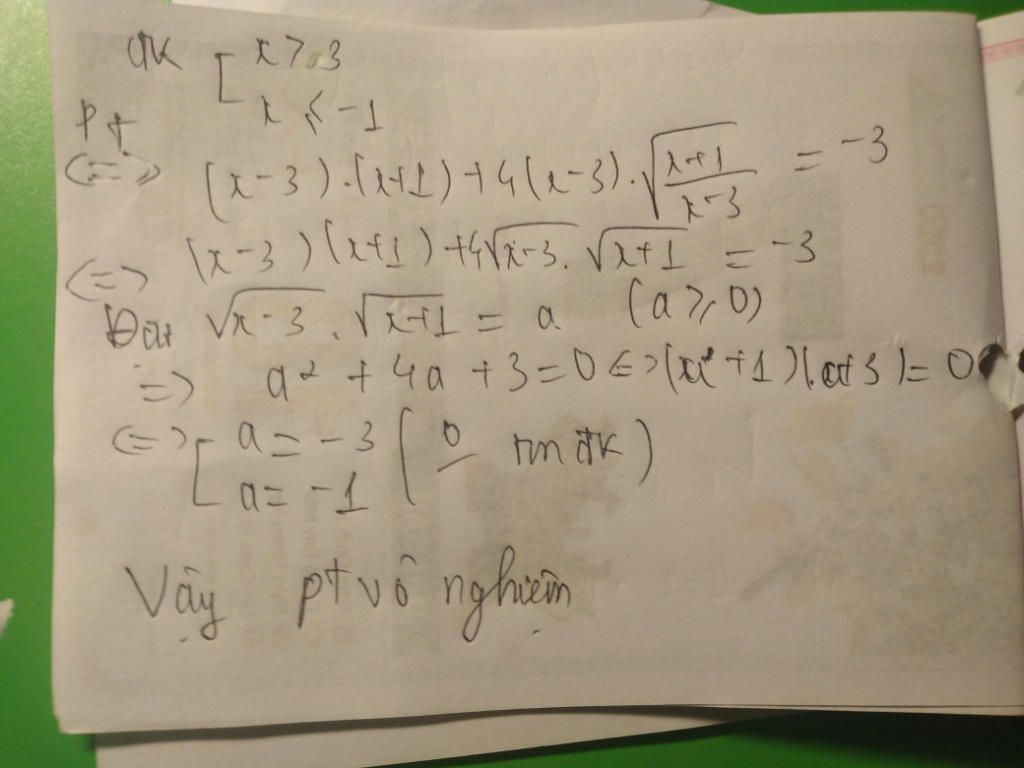 ĐK [ x > 3
x ≤ -1
Pt
<=> (x-3).(x+1)+4(x-3).√((x+1)/(x-3)) = -3
<=> (x-3)(x+1)+4√(x-3).√(x+1) = -3
Đặt √(x-3).√(x+1) = a (a ≥ 0)
=> a² + 4a + 3 = 0 <=> ( +1)(a+3)=0
<=> [ a = -3 (0 tmđk)
a = -1
Vậy pt vô nghiệm